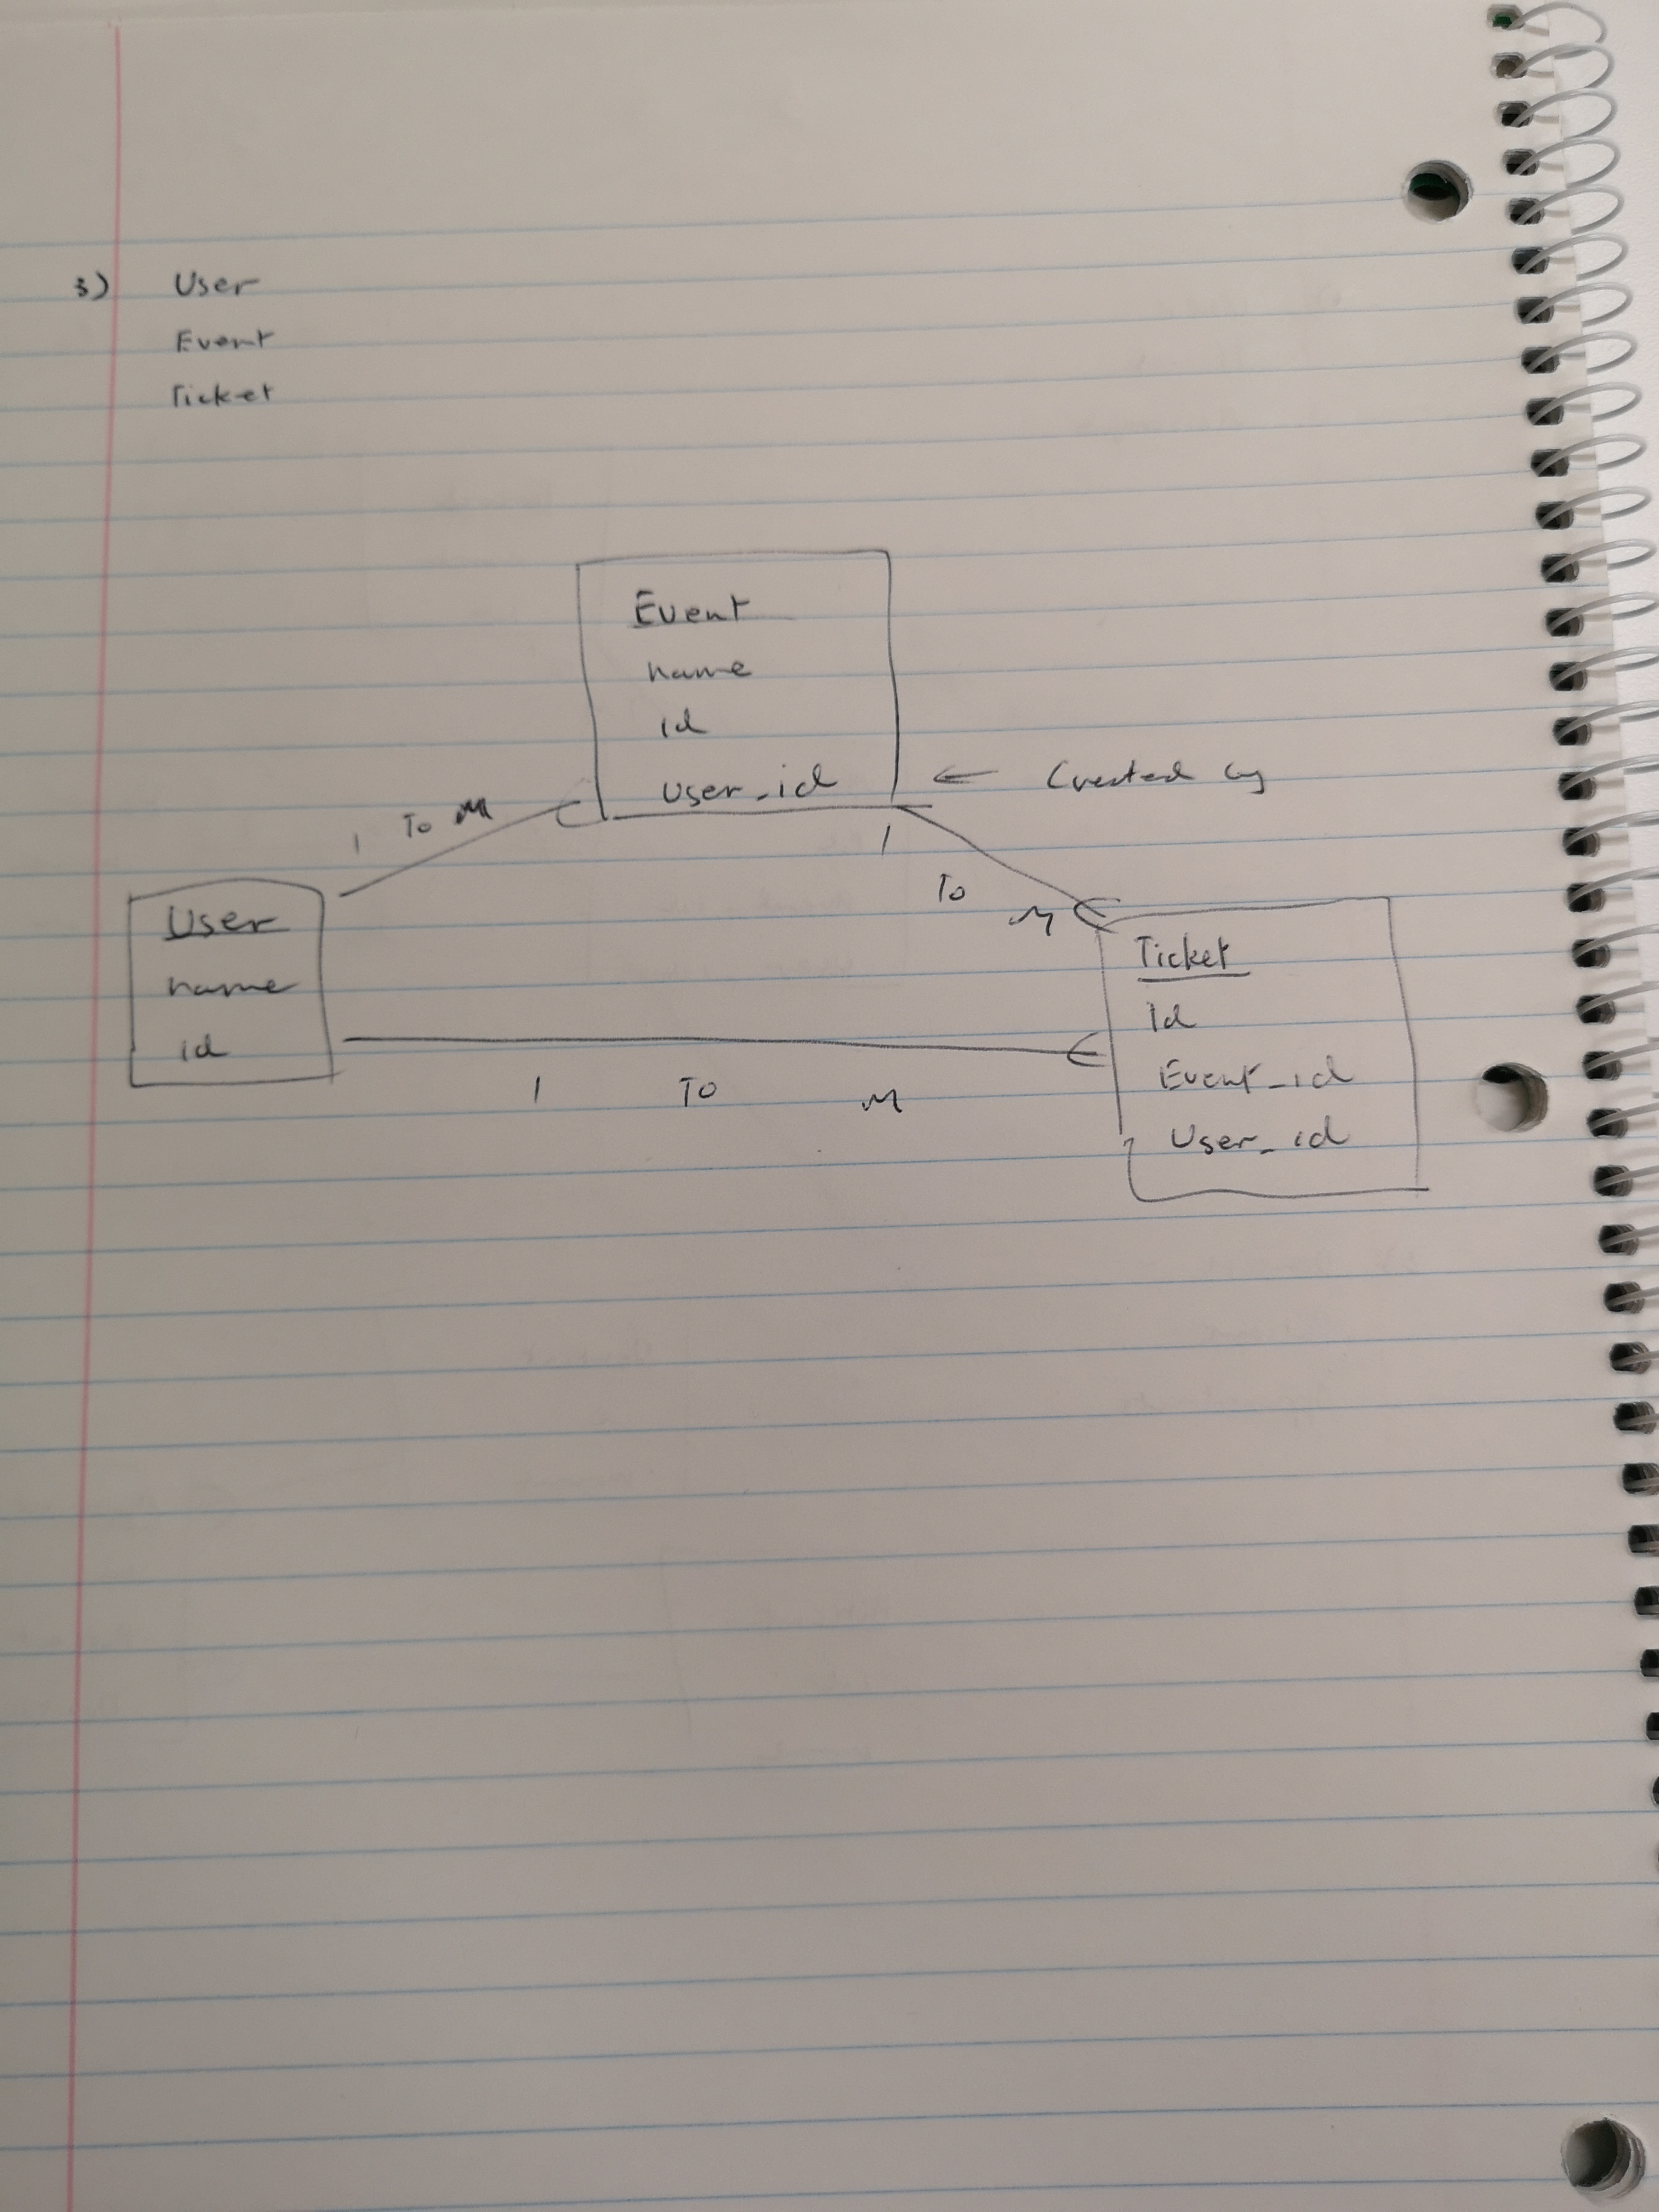 3) User
Event
Ticket
Event
name
id
User_id ← Created by
1 To M
1
To
M
User
name
id
Ticket
Id
Event_id
User_id
1 To M